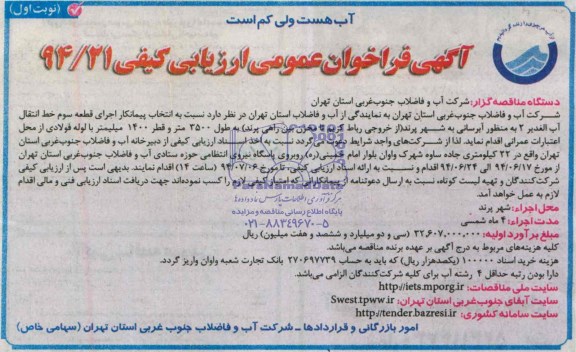 (نوبت اول)
آب هست ولی کم است
آگهی فراخوان عمومی ارزیابی کیفی ۹۴/۲۱
دستگاه مناقصه گزار: شرکت آب و فاضلاب جنوب‌غربی استان تهران
شرکت آب و فاضلاب جنوب‌غربی استان تهران به نمایندگی از آب و فاضلاب استان تهران در نظر دارد نسبت به انتخاب پیمانکار اجرای قطعه سوم خط انتقال
آب الغدیر ۲ به منظور آبرسانی به شهر پرند(از خروجی رباط کریم تا مخزن بین راهی پرند) به طول ۳۵۰۰ متر و قطر ۱۴۰۰ میلیمتر با لوله فولادی از محل
اعتبارات عمرانی اقدام نماید. لذا از شرکت‌های واجد شرایط دعوت می‌گردد نسبت به اخذ اسناد ارزیابی کیفی از دبیرخانه آب و فاضلاب جنوب‌غربی استان
تهران واقع در ۲۲ کیلومتری جاده ساوه شهرک واوان بلوار امام خمینی(ره) روبروی پاسگاه نیروی انتظامی حوزه ستادی آب و فاضلاب جنوب‌غربی استان تهران
از مورخ ۹۴/۰۶/۱۷ الی ۹۴/۰۶/۲۴ اقدام و نسبت به ارائه اسناد ارزیابی کیفی، تا مورخ ۹۴/۰۷/۰۶ (ساعت ۱۴) اقدام نمایند. بدیهی است پس از ارزیابی کیفی
شرکت‌کنندگان و تهیه لیست کوتاه، نسبت به ارسال دعوتنامه از پیمانکارانی که امتیاز کیفی لازم را کسب نموده‌اند جهت دریافت اسناد ارزیابی فنی و مالی اقدام
لازم به عمل خواهد آمد.
محل اجراء: شهر پرند
مدت اجراء: ۴ ماه شمسی
مبلغ برآورد اولیه: ۳۲,۶۰۷,۰۰۰,۰۰۰ (سی و دو میلیارد و ششصد و هفت میلیون) ریال
کلیه هزینه‌های مربوط به درج آگهی بر عهده برنده مناقصه می‌باشد.
هزینه خرید اسناد ۱۰۰۰۰۰ (یکصدهزار ریال) که باید به حساب ۲۷۰۶۹۷۷۳۹ بانک تجارت شعبه واوان واریز گردد.
دارا بودن رتبه حداقل ۴ رشته آب برای کلیه شرکت‌کنندگان الزامی می‌باشد.
سایت ملی مناقصات: http://iets.mporg.ir
سایت آبفای جنوب‌غربی استان تهران: Swest.tpww.ir
سایت سامانه کشوری: http://tender.bazresi.ir
امور بازرگانی و قراردادها ـ شرکت آب و فاضلاب جنوب غربی استان تهران (سهامی خاص)
پایگاه اطلاع رسانی مناقصه و مزایده
۰۲۱-۸۸۳۴۹۶۷۰-۵